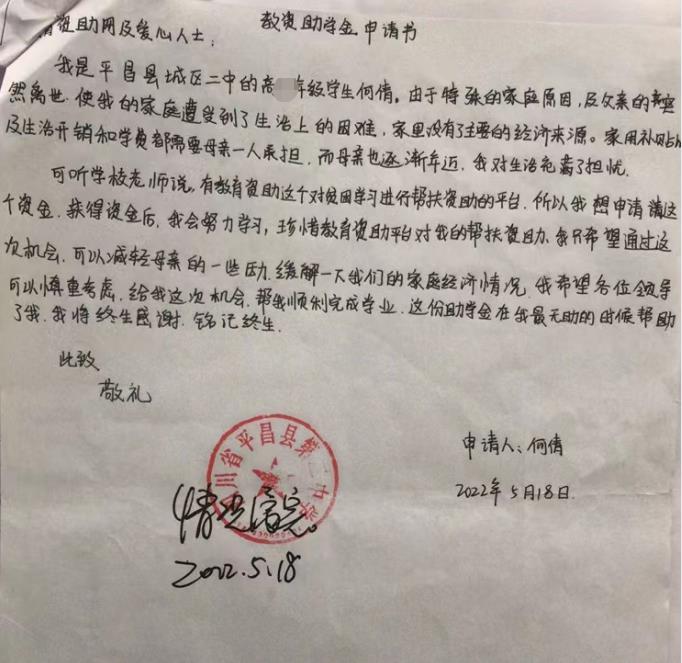 教资助学金申请书
资助网及爱心人士：
我是平昌县城区二中的高 年级学生何倩。由于特殊的家庭原因，及父亲的
然离世.使我的家庭遭受到了生活上的困难，家里没有了主要的经济来源。家用补贴
及生活开销和学费都需要母亲一人承担，而母亲也逐渐年迈，我对生活充满了担忧.
可听学校老师说，有教育资助这个对贫困学习进行帮扶资助的平台.所以我想申请请这
个资金.获得资金后，我会努力学习，珍惜教育资助平台对我的帮扶资助.我只希望通过这
次机会，可以减轻母亲的一些压力，缓解一下我们的家庭经济情况.我希望各位领导
可以慎重考虑，给我这次机会，帮我顺利完成学业.这份助学金在我最无助的时候帮助
了我.我将终生感谢.铭记终生.
此致
敬礼
申请人：何倩
2022年5月18日.
川省平昌县第 中学
情况属实。
2022.5.18